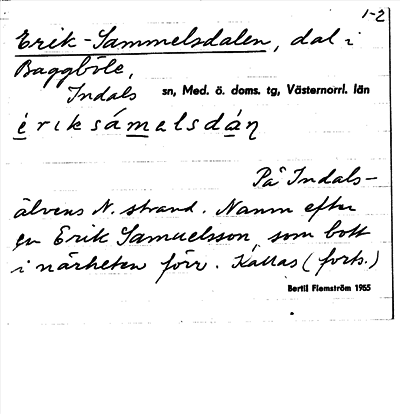 1-2
Erik-Sammelsdalen, dal i
Baggböle,
Indals sn, Med. ö. doms. tg, Västernorrl. län
é r i k s á m e l s d á ņ
På Indals-
älvens N. strand. Namn efter
en Erik Samuelsson, som bott
i närheten förr. Kallas (forts.)
Bertil Flemström 1965